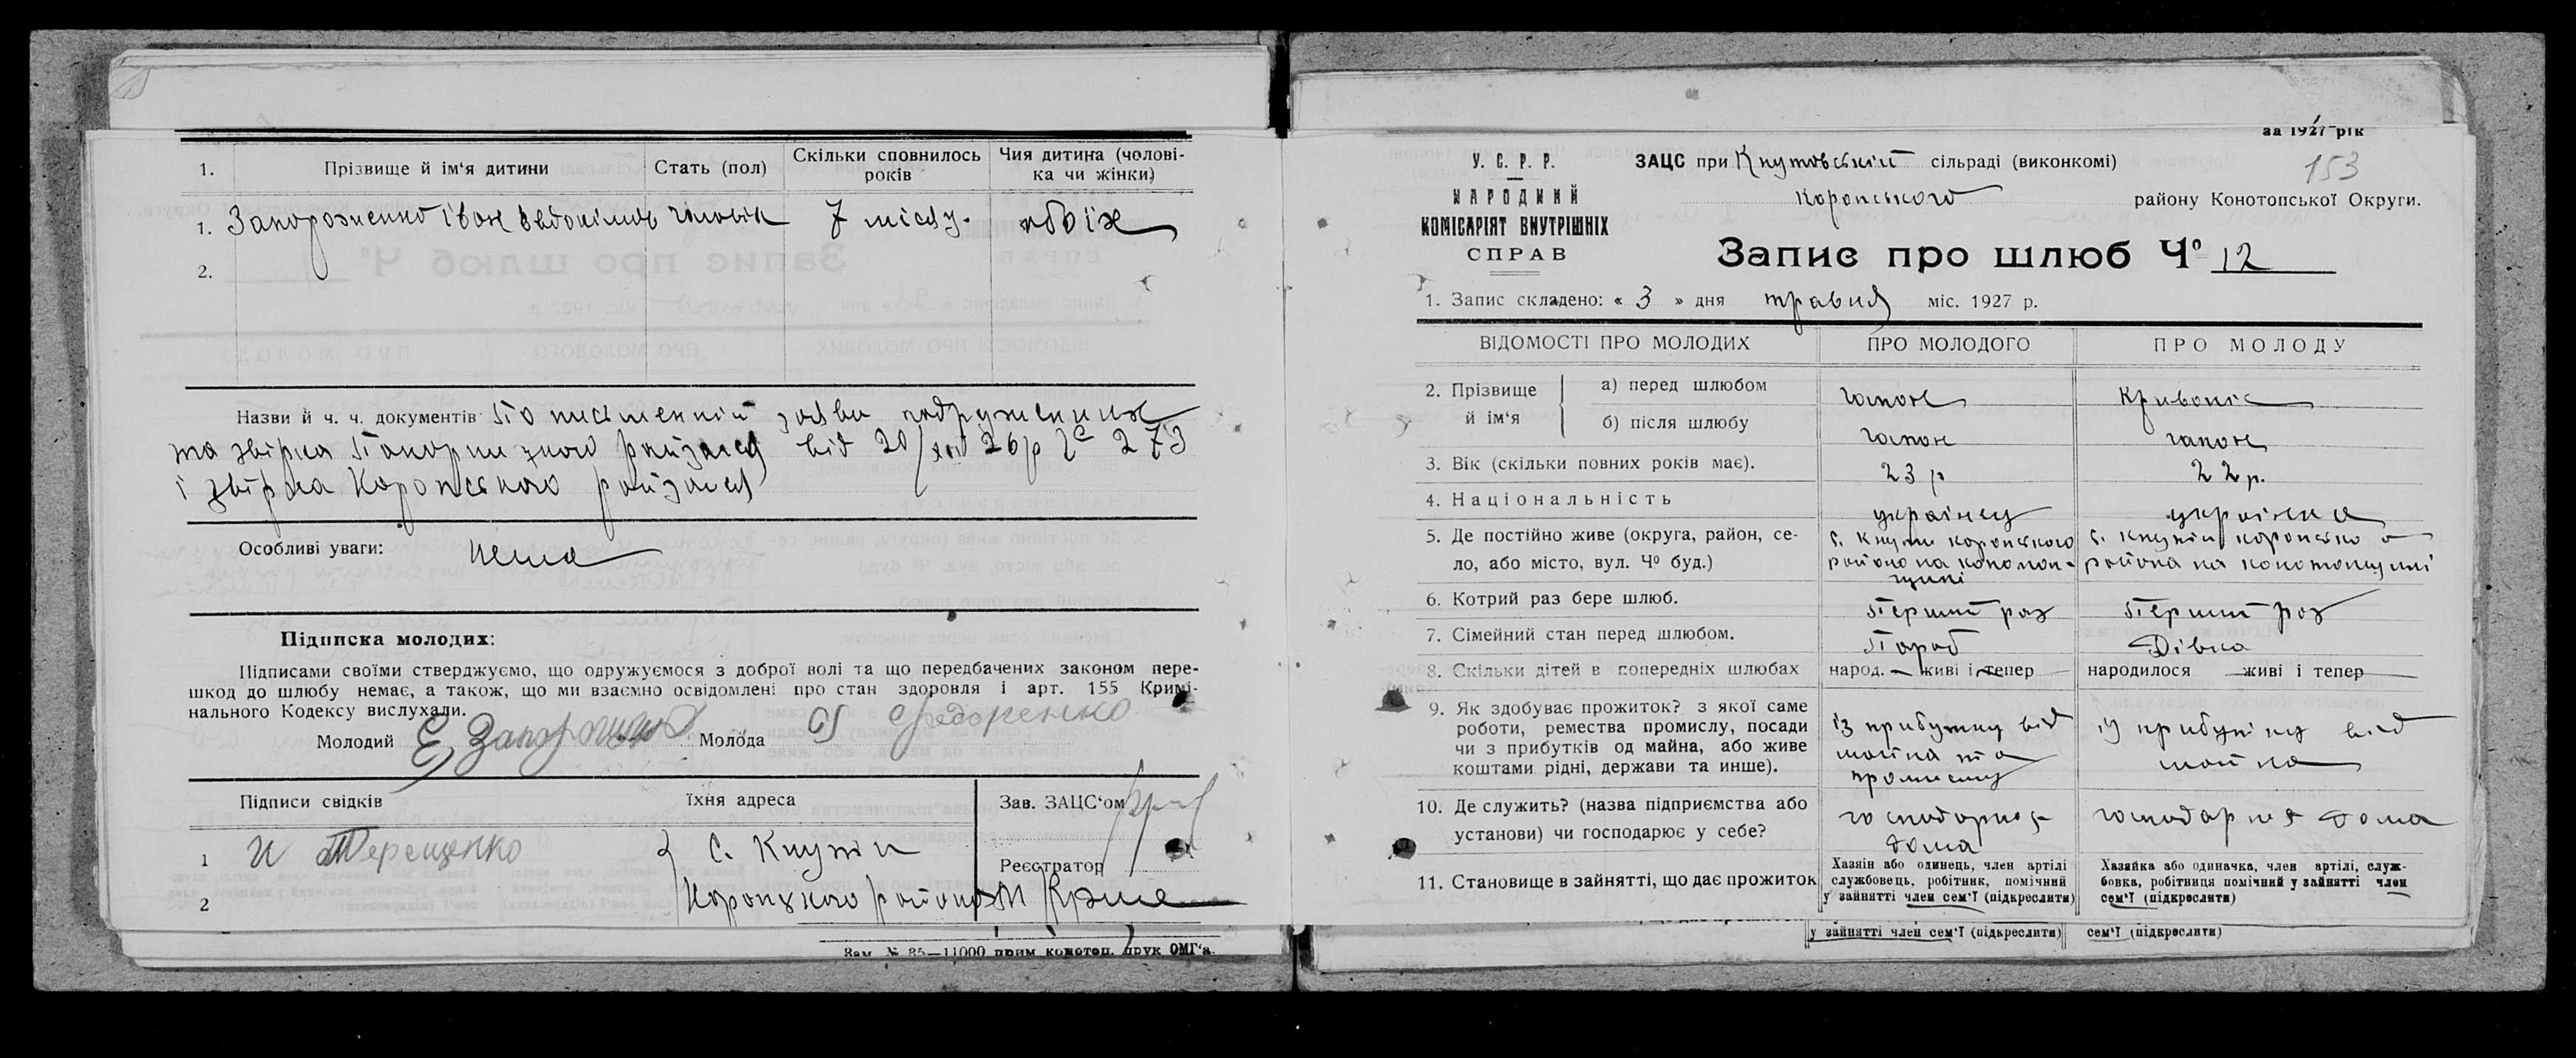 1. Прізвище й ім‘я дитини Стать (пол) Скільки сповнилось років Чия дитина (чоловіка чи жінки)
1. Запороженко іван 7 місяц. обоіх
2.
Назви й ч. ч. документів По письменній заяви подруженних
та звірка від 20/XII 26р Чо 273
і звірка Коропського
Особливі уваги: нема
Підписка молодих:
Підписами своїми стверджуємо, що одружуємося з доброї волі та що передбачених законом пере-
шкод до шлюбу немає, а також, що ми взаємно освідомлені про стан здоровля і арт. 155 Кримі-
нального Кодексу вислухали.
Молодий Є. Молода Федоренко
Підписи свідків Їхня адреса Зав. ЗАЦС‘ом
1 И Терещенко С. Кнути
Реєстратор
2 Коропского района
Зам. № 85—11000 прим. конотоп. друк ОМГ‘а.
за 1927 рік
У. С. Р. Р.
НАРОДНИЙ
КОМІСАРІЯТ ВНУТРІШНІХ
СПРАВ
ЗАЦС при Кнутовській сільраді (виконкомі)
153
Коропського району Конотопської Округи.
Запис про шлюб Чо 12
1. Запис складено: « 3 » дня травня міс. 1927 р.
ВІДОМОСТІ ПРО МОЛОДИХ ПРО МОЛОДОГО ПРО МОЛОДУ
2. Прізвище й ім‘я
а) перед шлюбом гапон Кривопіс
б) після шлюбу гапон гапон
3. Вік (скільки повних років має). 23 р 22 р.
4. Національність українец українка
5. Де постійно живе (округа, район, се-
ло, або місто, вул. Чо буд.)
с. Кнути коропського
района на конотоп-
щині
с. кнути коропсько о
района на конотопщині
6. Котрий раз бере шлюб. Перший раз Перший раз
7. Сімейний стан перед шлюбом. Пароб Дівка
8. Скільки дітей в попередніх шлюбах народ. — живі і тепер народилося — живі і тепер
9. Як здобуває прожиток? з якої саме
роботи, ремества промислу, посади
чи з прибутків од майна, або живе
коштами рідні, держави та инше).
із прибутку від
майна та
промислу
із прибутку від
майна
10. Де служить? (назва підприємства або
установи) чи господарює у себе?
господарює
дома
господарює дома
11. Становище в зайнятті, що дає прожиток
Хазяін або одинець, член артілі
службовець, робітник, помічний
у зайнятті член сем‘ї (підкреслити)
Хазяйка або одиначка, член артілі, служ-
бовка, робітниця помічний у зайнятті член
сем‘ї (підкреслити)
у зайнятті член сем‘ї (підкреслити) сем‘ї (підкреслити)